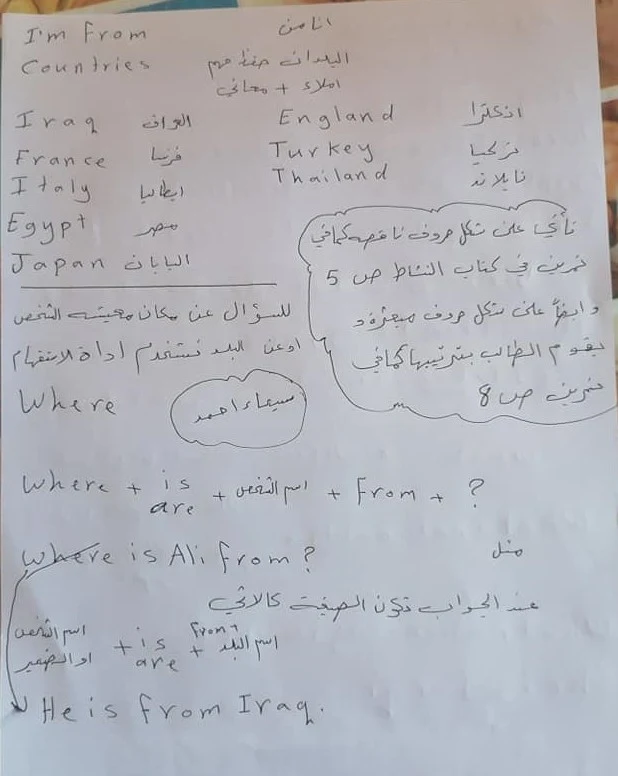 I'm From انا من
Countries البلدان حفظهم
املاء + معاني
Iraq العراق England انكلترا
France فرنسا Turkey تركيا
Italy ايطاليا Thailand تايلاند
Egypt مصر
Japan اليابان
تأتي على شكل حروف ناقصه كما في
تمرين في كتاب النشاط ص 5
وايضاً على شكل حروف مبعثرة و
يقوم الطالب بترتيبها كما في
تمرين ص 8
للسؤال عن مكان معيشه الشخص
او عن البلد نستخدم اداة الاستفهام
Where
سيماء احمد
Where + is + اسم الشخص + From + ?
are
مثل
Where is Ali from?
عند الجواب تكون الصيغة كالاتي
اسم الشخص + is + from + اسم البلد
او الضمير are
He is from Iraq.